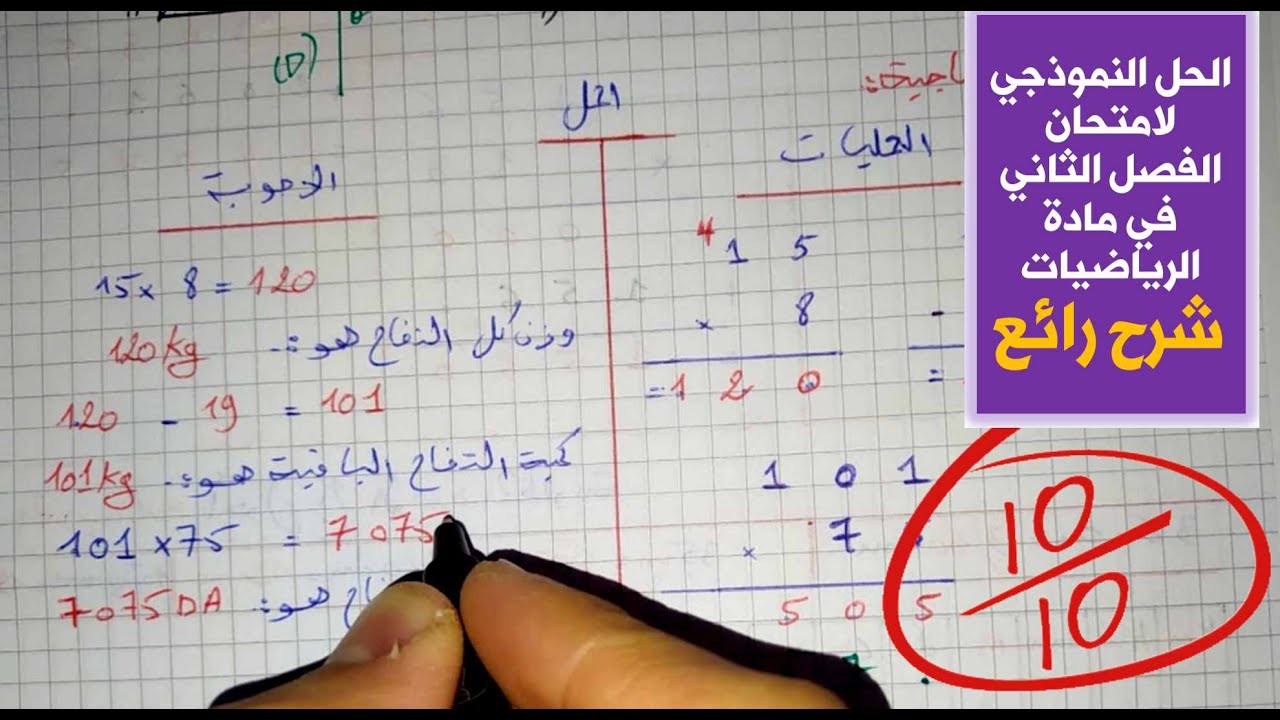 (D)
الحل النموذجي
لامتحان
الفصل الثاني
في مادة
الرياضيات
شرح رائع
الحل
العمليات
الاجوبة
4
1 5
× 8
= 1 2 0
-
=
1 0 1
× 7
5 0 5
15 × 8 = 120
وزن كل التفاح هو: 120kg
120 - 19 = 101
كمية التفاح الباقية هو: 101kg
101 × 75 = 7075
هو: 7075DA
10/10